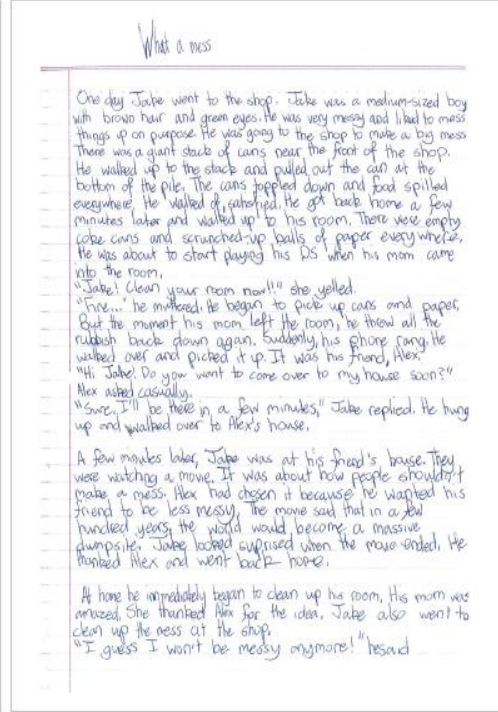 What a mess
One day Jake went to the shop. Jake was a medium-sized boy
with brown hair and green eyes. He was very messy and liked to mess
things up on purpose. He was going to the shop to make a big mess
There was a giant stack of cans near the front of the shop.
He walked up to the stack and pulled out the can at the
bottom of the pile. The cans toppled down and food spilled
everywhere. He walked of, satisfied. He got back home a few
minutes later and walked up to his room. There were empty
coke cans and scrunched-up balls of paper everywhere.
He was about to start playing his DS when his mom came
into the room.
"Jake! Clean your room now!!" she yelled.
"Fine..." he muttered. He began to pick up cans and paper.
But the moment his mom left the room, he threw all the
rubbish back down again. Suddenly, his phone rang. He
walked over and picked it up. It was his friend, Alex.
"Hi Jake! Do you want to come over to my house soon?"
Alex asked casually.
"Sure. I'll be there in a few minutes," Jake replied. He hung
up and walked over to Alex's house.
A few minutes later, Jake was at his friend's house. They
were watching a movie. It was about how people shouldn't
make a mess. Alex had chosen it because he wanted his
friend to be less messy. The movie said that in a few
hundred years, the world would become a massive
dumpsite. Jake looked suprised when the movie ended. He
thanked Alex and went back home.
At home he immediately began to clean up his room. His mom was
amazed. She thanked Alex for the idea. Jake also went to
clean up the mess at the shop.
"I guess I won't be messy anymore!" he said